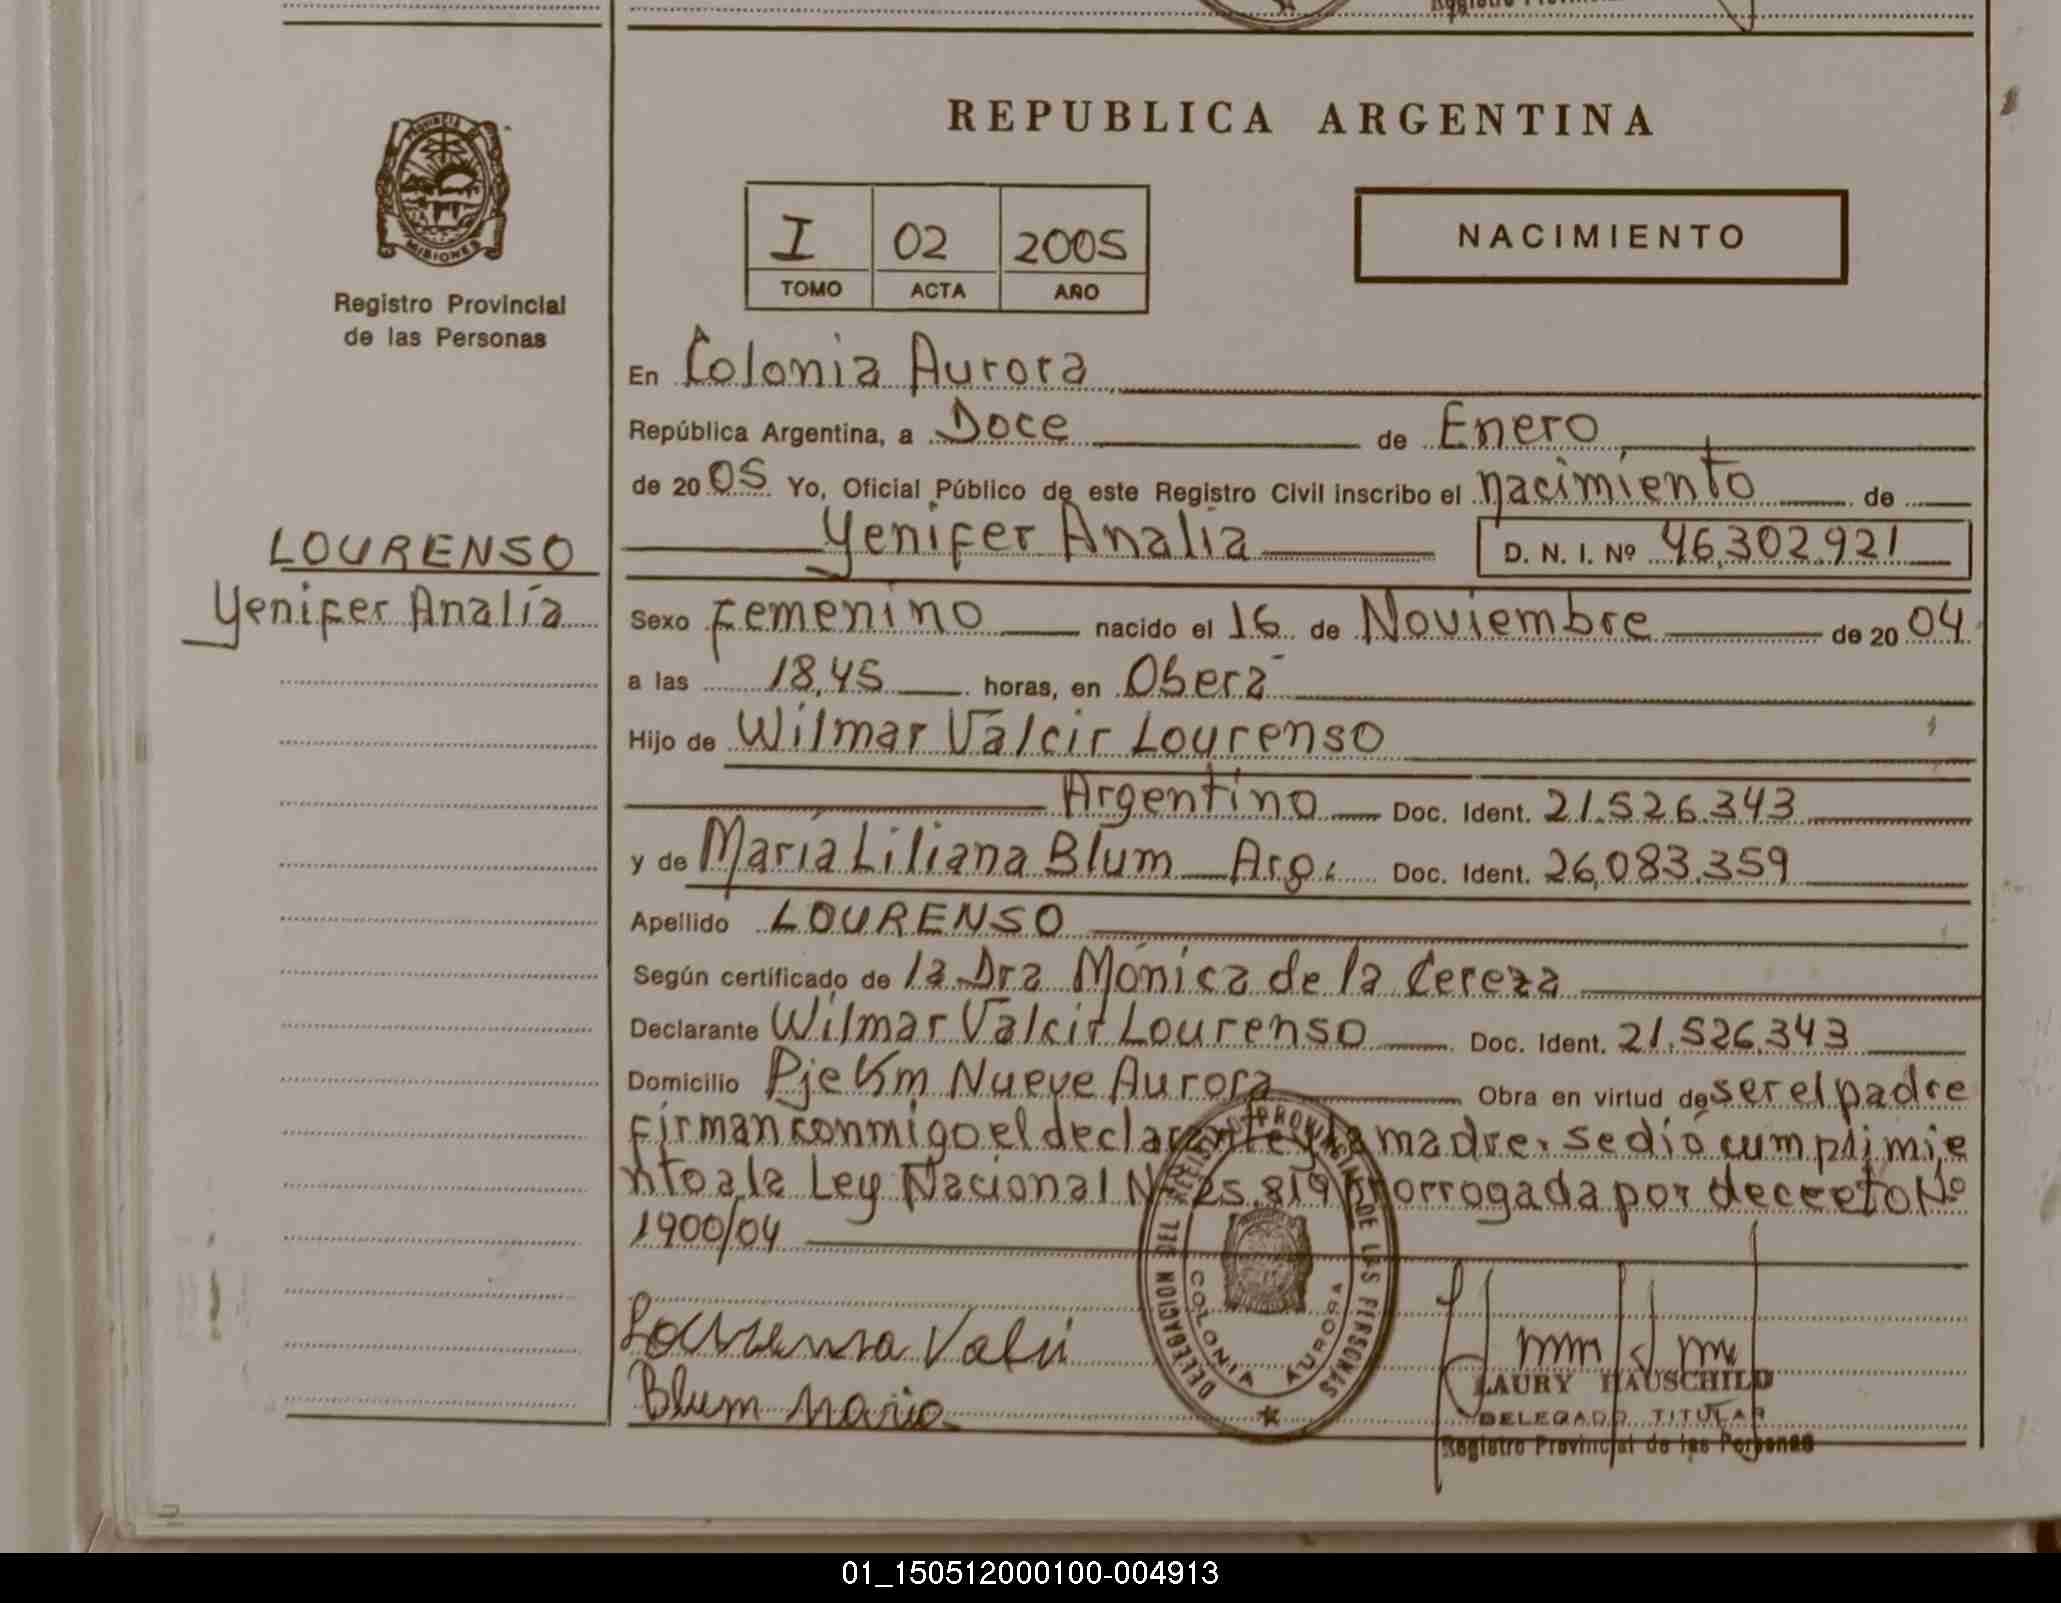 REPUBLICA ARGENTINA
PROVINCIA DE MISIONES
Registro Provincial
de las Personas
I 02 2005
TOMO ACTA AÑO
NACIMIENTO
En Colonia Aurora
República Argentina, a Doce de Enero
de 2005 Yo, Oficial Público de este Registro Civil inscribo el nacimiento de
Yenifer Analia D. N. I. Nº 46,302.921
LOURENSO
Yenifer Analía
Sexo Femenino nacido el 16 de Noviembre de 2004
a las 18,45 horas, en Oberá
Hijo de Wilmar Valcir Lourenso
Argentino Doc. Ident. 21.526.343
y de María Liliana Blum Arg. Doc. Ident. 26,083.359
Apellido LOURENSO
Según certificado de la Dra Mónica de la Cereza
Declarante Wilmar Valcir Lourenso Doc. Ident. 21.526.343
Domicilio Pje Km Nueve Aurora Obra en virtud de ser el padre
Firman conmigo el declarante y la madre. se dió cumplimie
nto a la Ley Nacional Nº 25.819 prorrogada por decreto Nº
1900/04
Blum Maria
DELEGACION DEL REGISTRO PROVINCIAL DE LAS PERSONAS
COLONIA AURORA
LAURY HAUSCHILD
DELEGADO TITULAR
Registro Provincial de las Personas
01_150512000100-004913